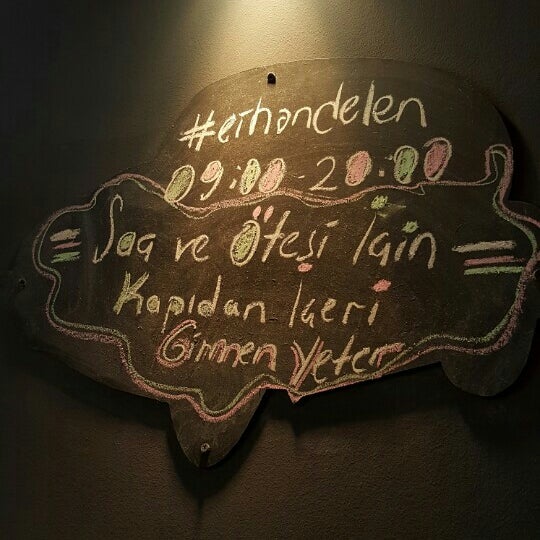 #erhandelen
09:00-20:00
Saç ve Ötesi İçin
Kapıdan İçeri
Girmen Yeter